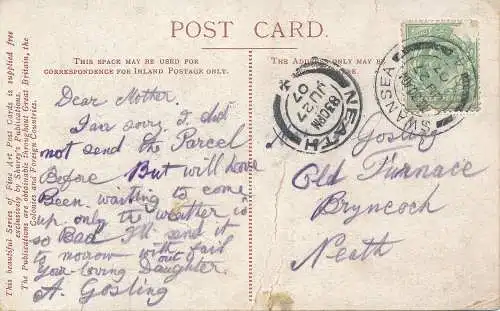 POST CARD.
THIS SPACE MAY BE USED FOR
CORRESPONDENCE FOR INLAND POSTAGE ONLY.
THE ADDRESS ONLY MAY BE
This beautiful Series of Fine Art Post Cards is supplied free
exclusively by Shurey's Publications.
The Publications are obtainable throughout Great Britain, the
Colonies and Foreign Countries.
Dear Mother.
I am sorry I did
not send the Parcel
Before But will have
Been waiting to come
up only the weather is
so Bad I'll send it
to morrow with out fail
Your loving Daughter.
A. Gosling
NEATH
8 30 PM
JU 27
07
SWANSEA
Gosling
Old Furnace
Bryncoch
Neath